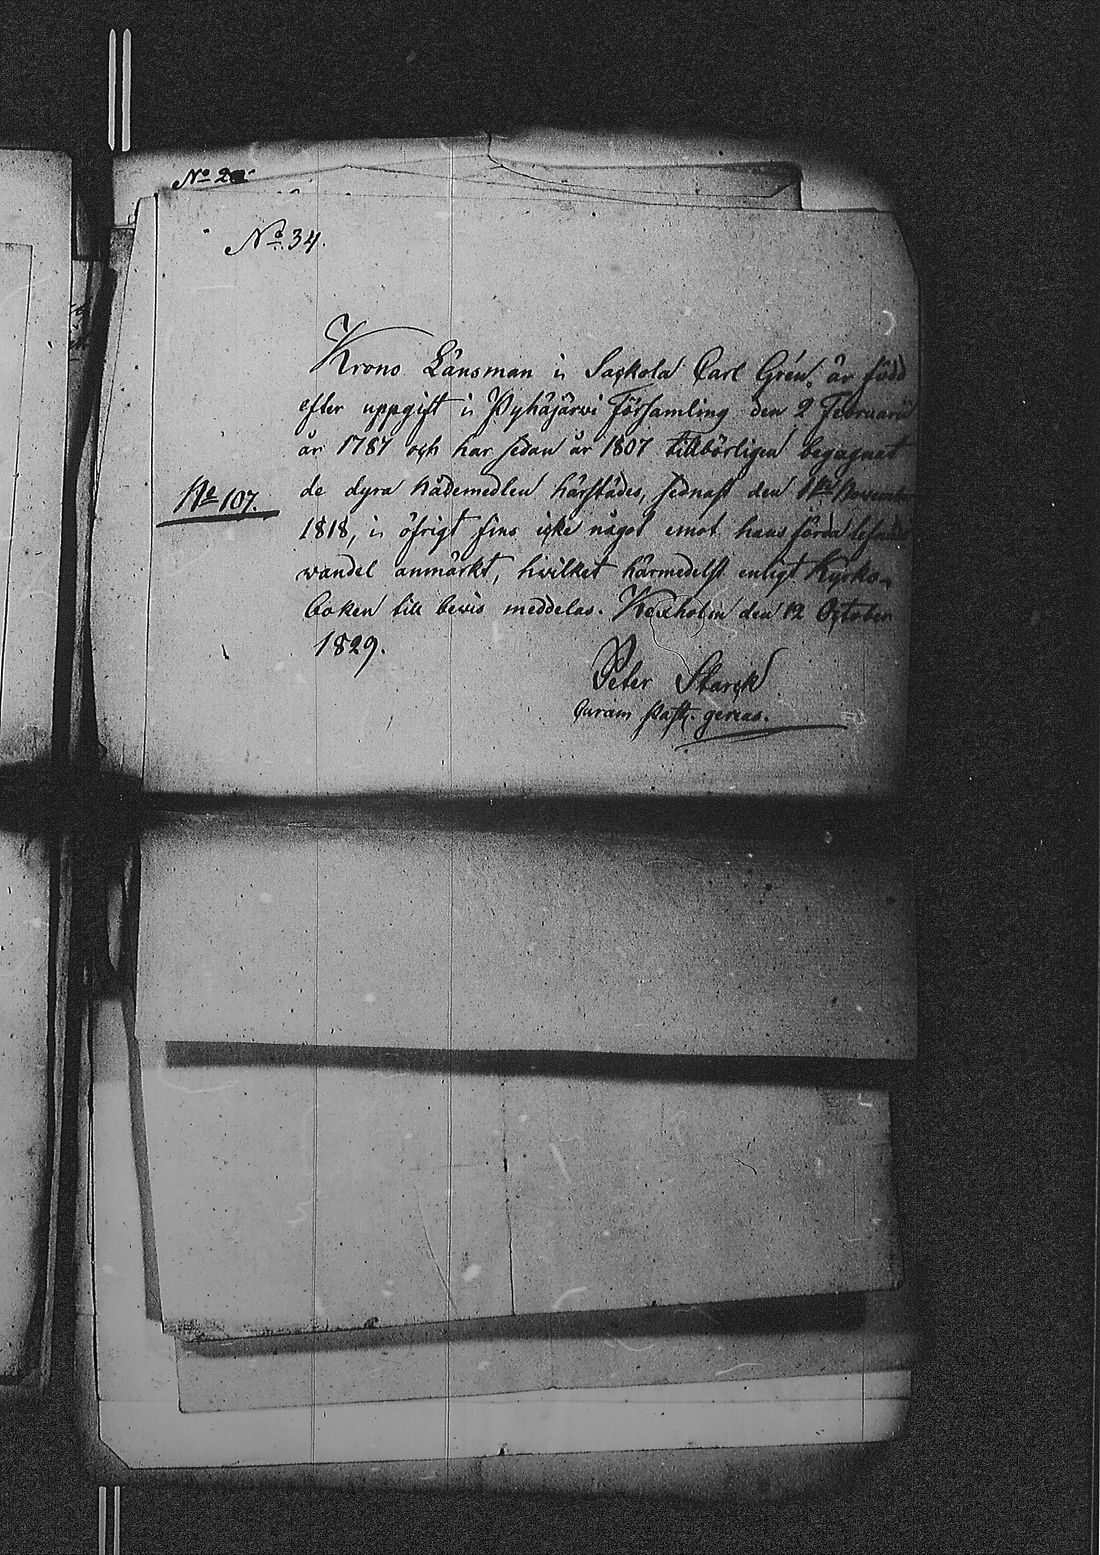 No 2
No. 34.
Krono Länsman i Sackola Carl Grén, är född
efter uppgift i Pyhäjärvi Församling den 2 Februarii
år 1787 och har sedan år 1807 tillbörligen begagnat
de dyra Nådemedlen härstädes, sednast den 1ste November
No 107.
1818, i öfrigt fins icke något emot hans förda lefnads
vandel anmärkt, hvilket härmedelst enligt Kyrko-
boken till bevis meddelas. Kexholm den 12 October
1829.
Peter Starck
Curam Past. gerens.